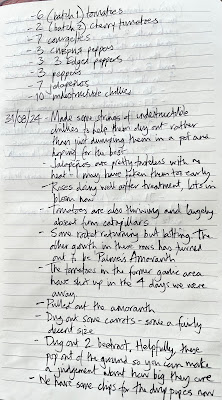 - 6 (batch 1) tomatoes
- 2 (batch 2) cherry tomatoes
- 7 courgettes
- 3 chespris peppers
- 3 3 Edged peppers
- 3 peppers
- 7 jalapeños
- 10 indestructible chillies
31/08/24 - Made some strings of indestructible
chillies to help them dry out rather
than just dumping them in a pot and
hoping for the best
- Jalapeños are pretty tasteless with no
heat - I may have taken them too early
- Roses doing well after treatment, lots in
bloom now
- Tomatoes are also thriving and largely
absent from caterpillars
- Some rocket returning but bolting. The
other growth in these rows has turned
out to be Palmer's Amaranth
- The tomatoes in the former garlic area
have shot up in the 4 days we were
away
- Pulled out the amaranth
- Dug out some carrots - some a fairly
decent size
- Dug out 2 beetroot. Helpfully, these
pop out of the ground so you can make
a judgement about how big they are
- We have some chips for the dung pages now